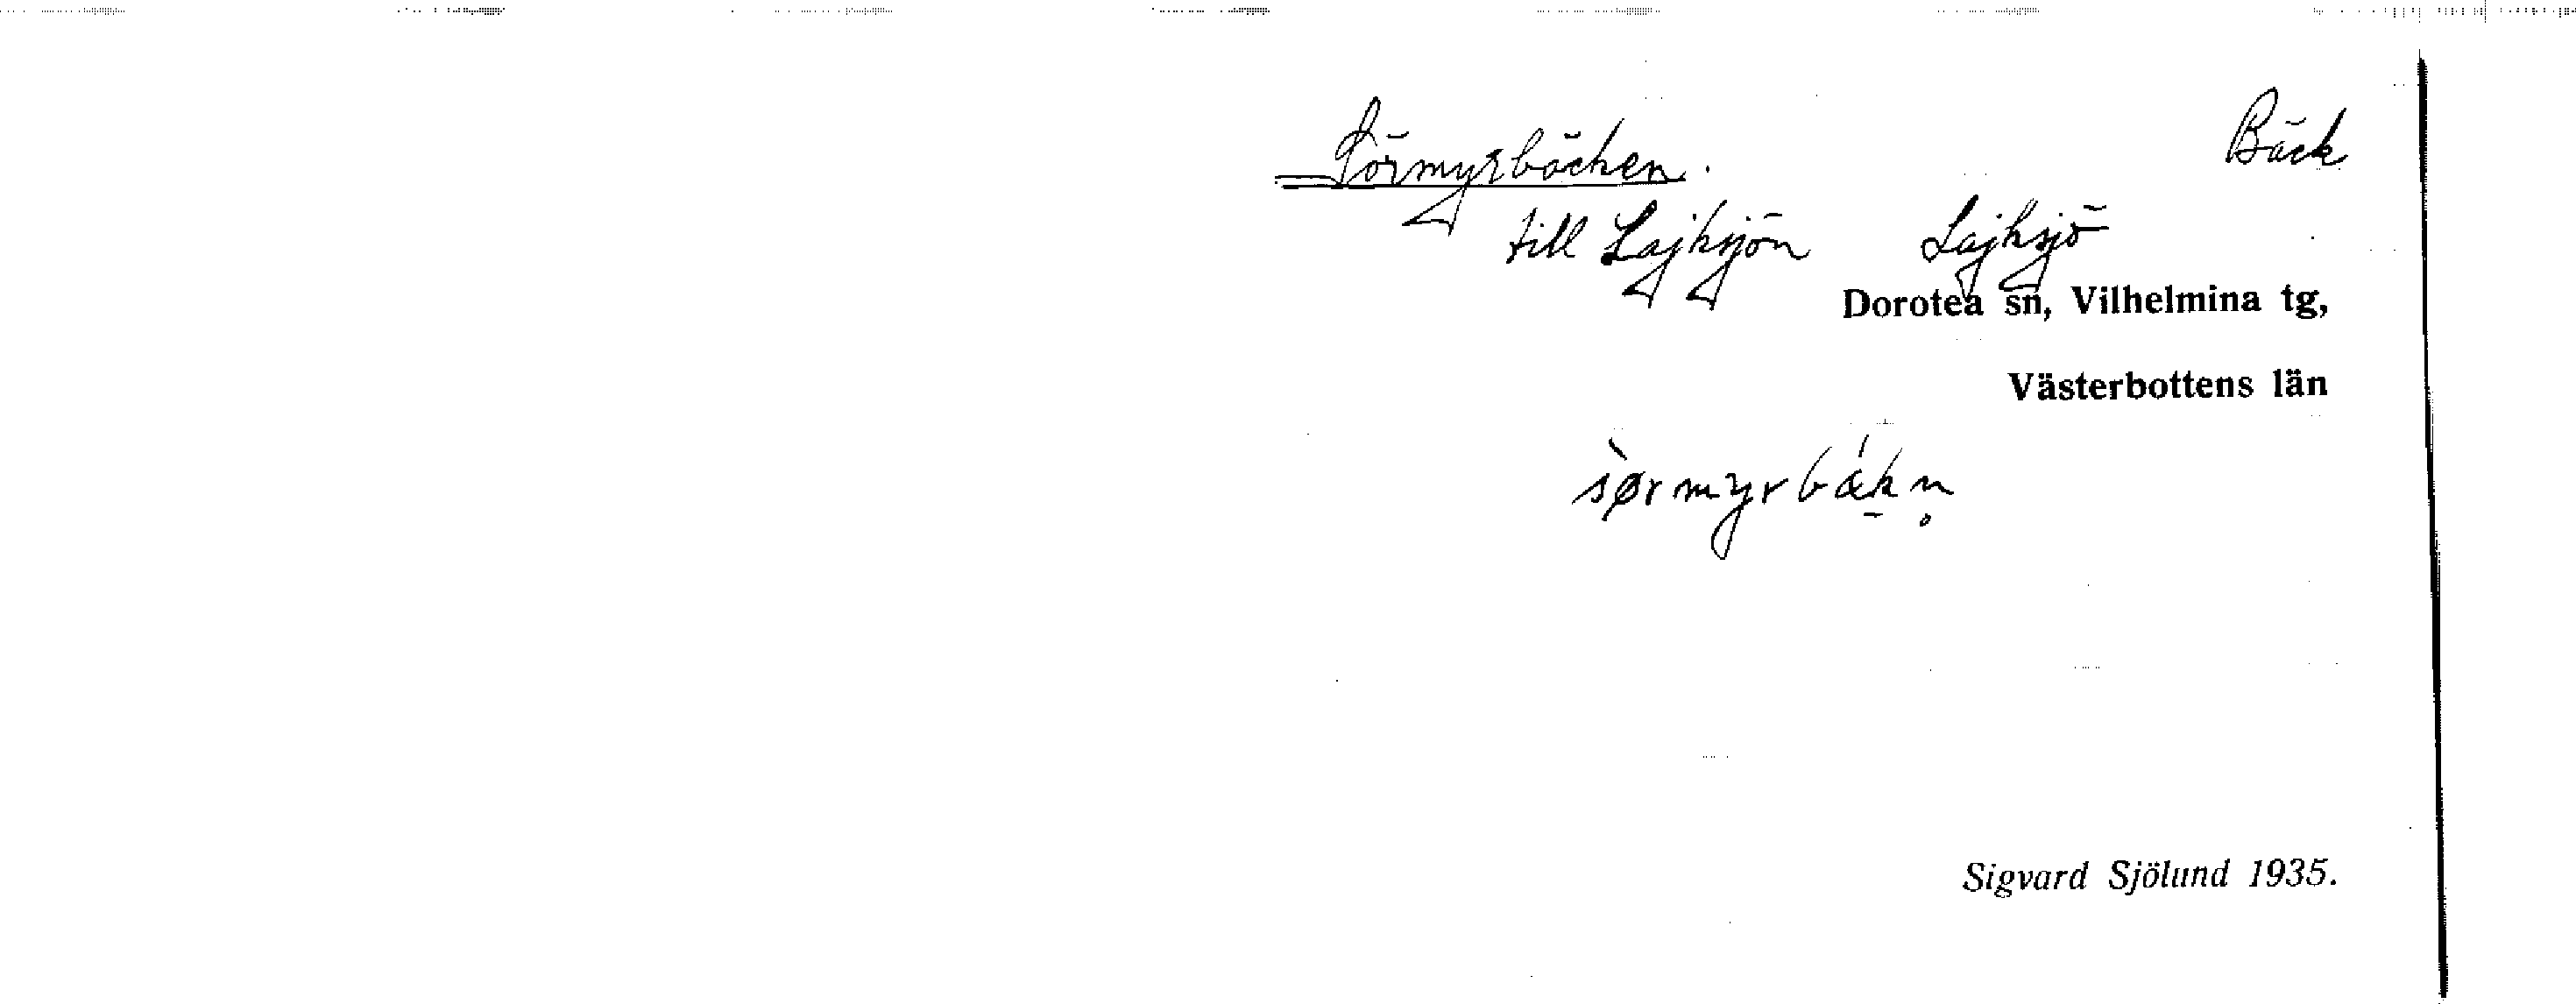 Sörmyrbäcken. Bäck
till Lajksjön Lajksjö
Dorotea sn, Vilhelmina tg,
Västerbottens län
sø̀rmyrbǽkn̥
Sigvard Sjölund 1935.